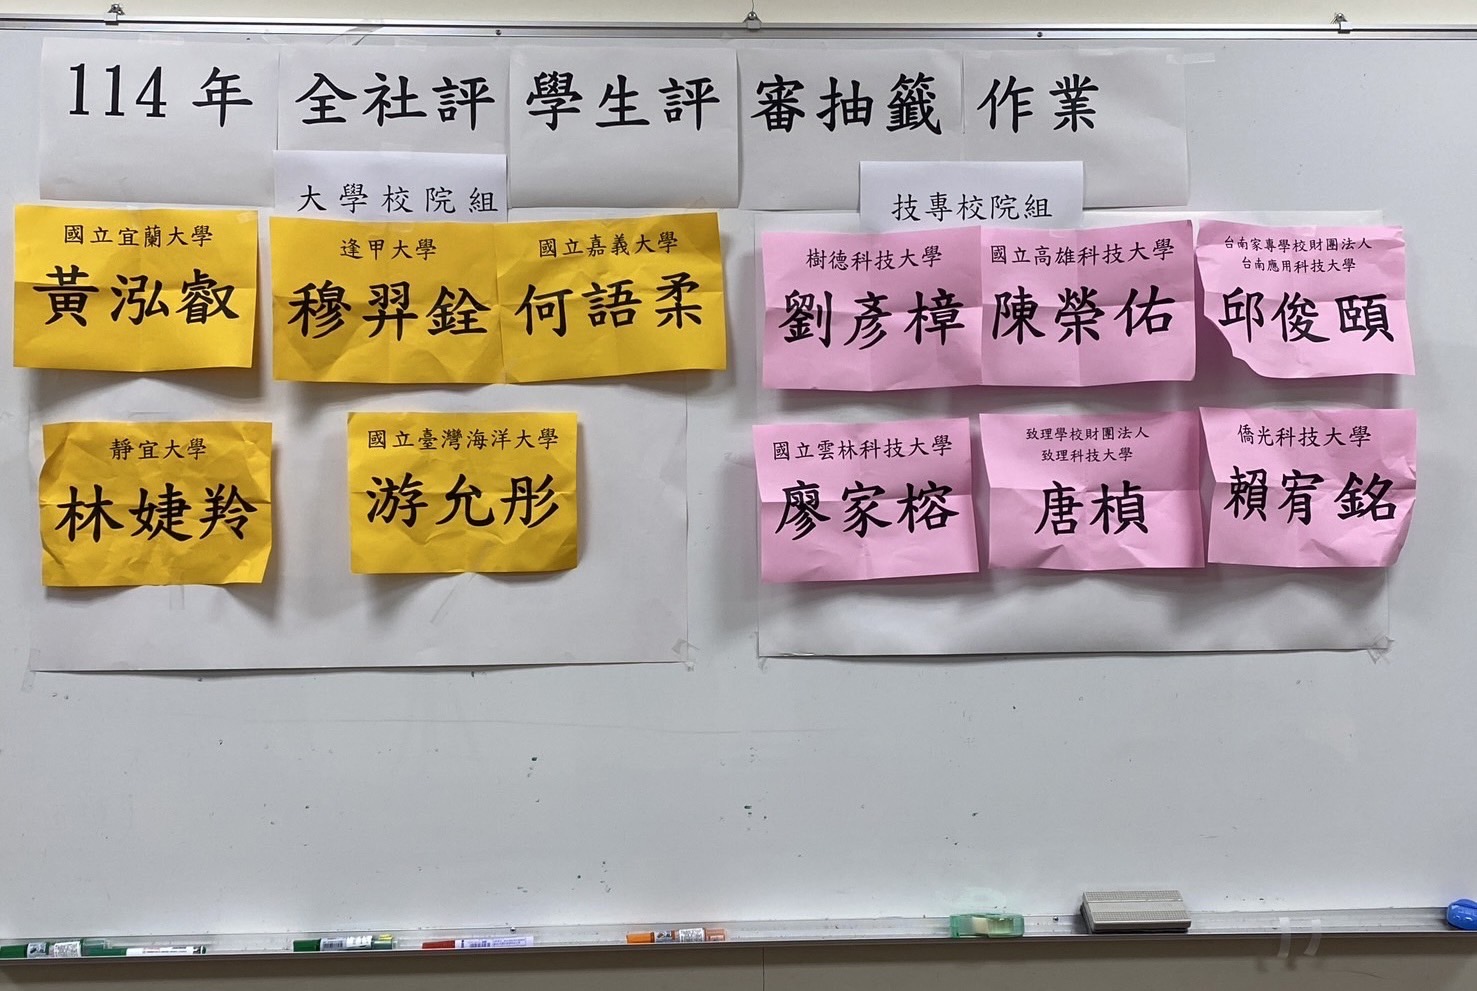 114年全社評學生評審抽籤作業
大學校院組
國立宜蘭大學
黃泓睿
逢甲大學
穆羿銓
國立嘉義大學
何語柔
靜宜大學
林婕羚
國立臺灣海洋大學
游允彤
技專校院組
樹德科技大學
劉彥樟
國立高雄科技大學
陳榮佑
台南家專學校財團法人
台南應用科技大學
邱俊頤
國立雲林科技大學
廖家榕
致理學校財團法人
致理科技大學
唐楨
僑光科技大學
賴宥銘